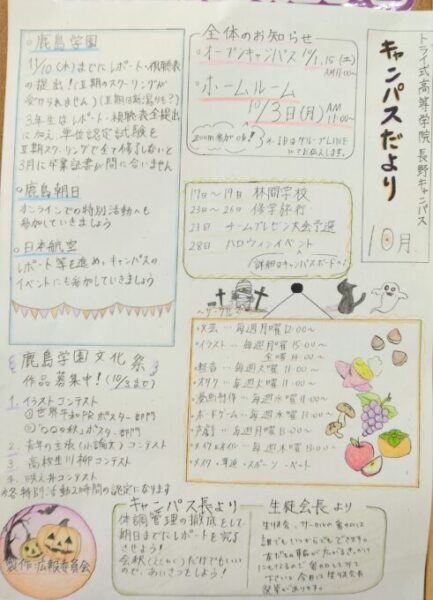 トライ式高等学院 長野キャンパス
キャンパスだより
10月
全体のお知らせ
・オープンキャンパス 10/1,15(土)
AM11:00〜
・ホームルーム
10/3日(月) AM
11:00〜
zoom参加OK!
17日〜19日 林間学校
23日〜26日 修学旅行
23日 チームプレゼン大会予選
28日 ハロウィンイベント
詳細はキャンパスボードへ!
・鹿島学園
11/10(木)までにレポート・視聴表
の提出!(Ⅱ期のスクーリングが
受けられません)
3年生はレポート・視聴表全提出
に加え、単位認定試験を
Ⅱ期スクーリングで全て修了しないと
3月に卒業証書が間に合いません
・鹿島朝日
オンラインでの特別活動へも
参加していきましょう
・日本航空
レポート等を進め、キャンパスの
イベントにも参加していきましょう
〜サークル〜
・文芸…毎週月曜12:00〜
・イラスト…毎週月曜15:00〜
金曜14:00〜
・軽音…毎週火曜11:00〜
・オタク…毎週火曜11:00〜
・漫画制作…毎週水曜11:00〜
・ボードゲーム…毎週水曜13:00〜
・声劇…毎週月曜13:00〜
鹿島学園文化祭
作品募集中!(10/3まで)
1. イラストコンテスト
①世界平和PRポスター部門
2. 青年の主張(小論文)コンテスト
3. 高校生川柳コンテスト
4. 映え弁コンテスト
※各特別活動2時間の認定になります
製作:広報委員会
キャンパス長より
体調管理の徹底をして
期日までにレポートを完了
させよう!
会釈(えしゃく)だけでもいい
ので、あいさつをしよう!
生徒会長より